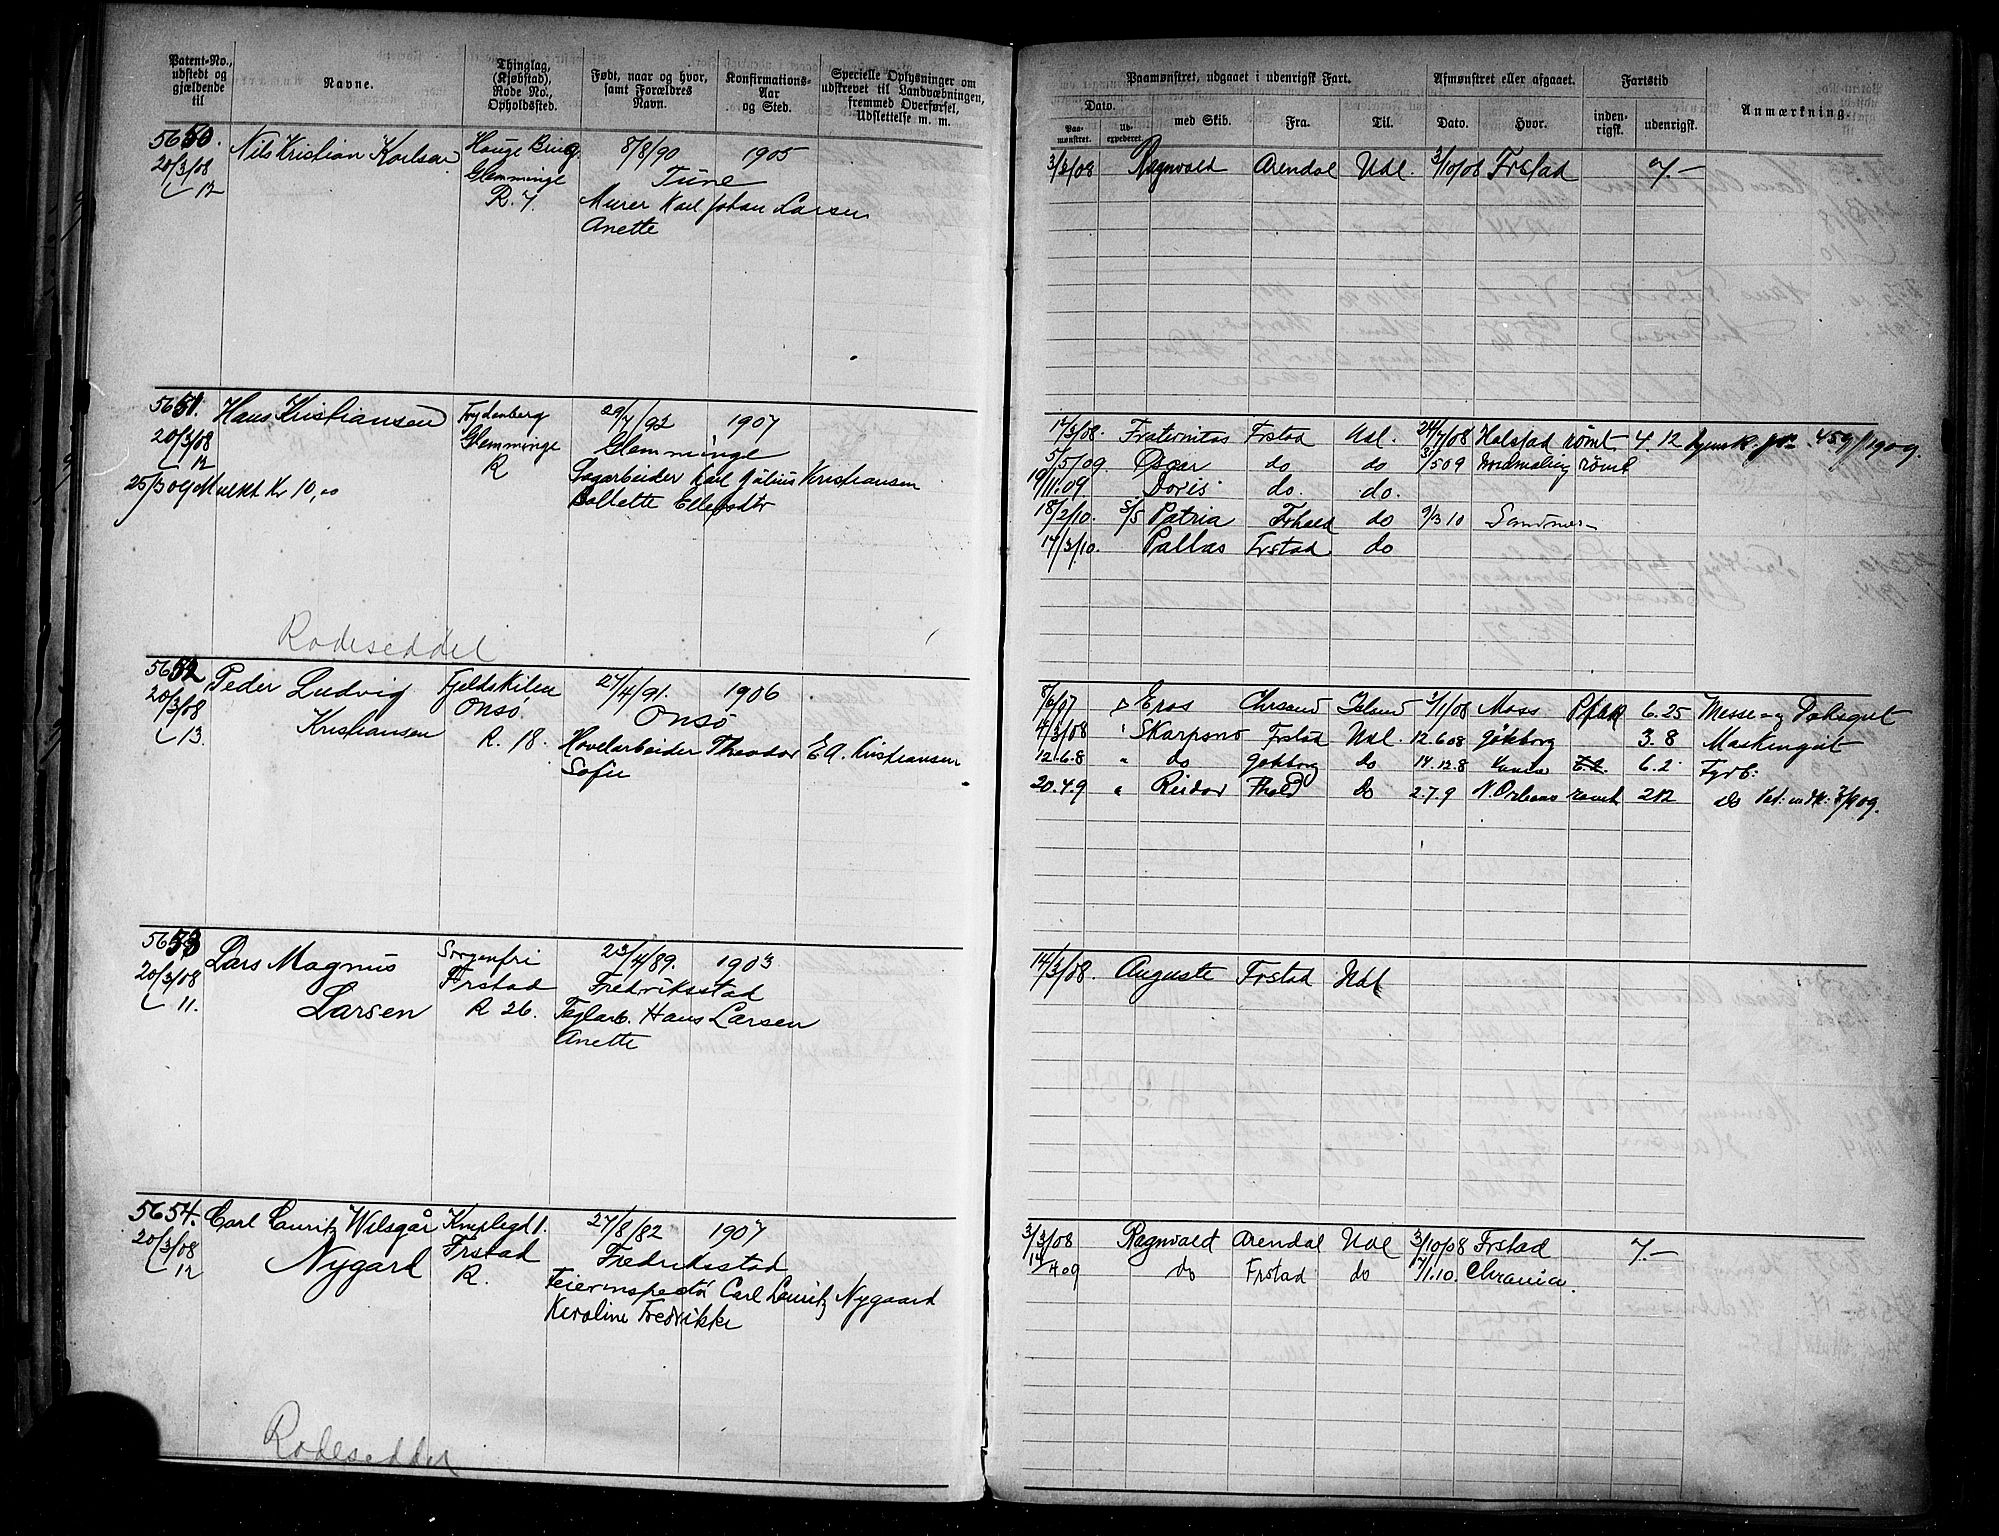 Patent-No., udstedt og gjældende til
Navne.
Thinglag, (Kjøbstad), Rode No., Opholdssted.
Født, naar og hvor, samt Forældres Navn.
Konfirmations-Aar og Sted.
Specielle Oplysninger om udskrevet til Landværbningen, fremmed Overførsel, Udslettelse m. m.
5650. Nils Kristian Karlsen Hauge Brug. 8/8/90 1905
20/3/08 Glemminge Tune
12 R. 7. Murer Karl Johan Larsen
Anette
5651. Hans Kristiansen Frydenberg 29/7/92 1907
20/3/08 Glemminge Glemminge
12 R Sagarbeider Karl Julius Kristiansen
25/3 09 Mulkt Kr 10,00
Rodeseddel
5652 Peder Ludvig Fjeldskilen 27/4/91. 1906
20/3/08 Kristiansen Onsø Onsø
13. R. 18. Høvelarbeider Theodor Ed. Kristiansen
Sofie
5653 Lars Magnus Sorgenfri 23/4/89. 1903
20/3/08 Larsen Frstad Fredriksstad
11. R 26. Teglarb. Hans Larsen
Anette
5654. Carl Lauritz Wilsgår 27/8/82 1907
20/3/08 Nygard Frstad Fredriksstad
12 R. Feierinspektør Carl Lauritz Nygaard
Karoline Fredrikke
Rodeseddel
Paamønstret, udgaaet i udenrigsk Fart.
Afmønstret eller afgaaet.
Fartstid
Anmærkning.
Dato.
Paa-mønstret.
Ud-expederet.
med Skib.
Fra.
Til.
Dato.
Hvor.
inden-rigsk.
udenrigsk.
3/3/08 Ragnvald Arendal Udl. 3/10/08 Frstad 7.-
17/3/08. Fraternitas Frstad Udl. 24/7/08 Halstad rømt 4. 12
5/5/09. Oscar do do 3/5 09 Nordmaling rømt
19/11.09 Doris do. do.
18/2/10. S/S Patria Frhald do 9/3 10
17/3/10. Pallas Frstad do
8/6/07 Eros Chrsand Island 1/1/08 Moss 6.25 Messe og Dæksgut
17/3/08 Skarpsno Frstad Udl. 12.6.08 Gøtborg 3. 8 Maskingut
12.6.8 do Gøtborg do 14.12.8 6.2 Fyrb.
20.4.9 Reidar Fhald do 2.7.9 N. Orleans rømt 2.12 do
14/3/08. Auguste Frstad Udl
3/3/08 Ragnvald Arendal Udl 3/10/08 Frstad 7.-
14/4 09 do Frstad do 17/1.10. Chrania.